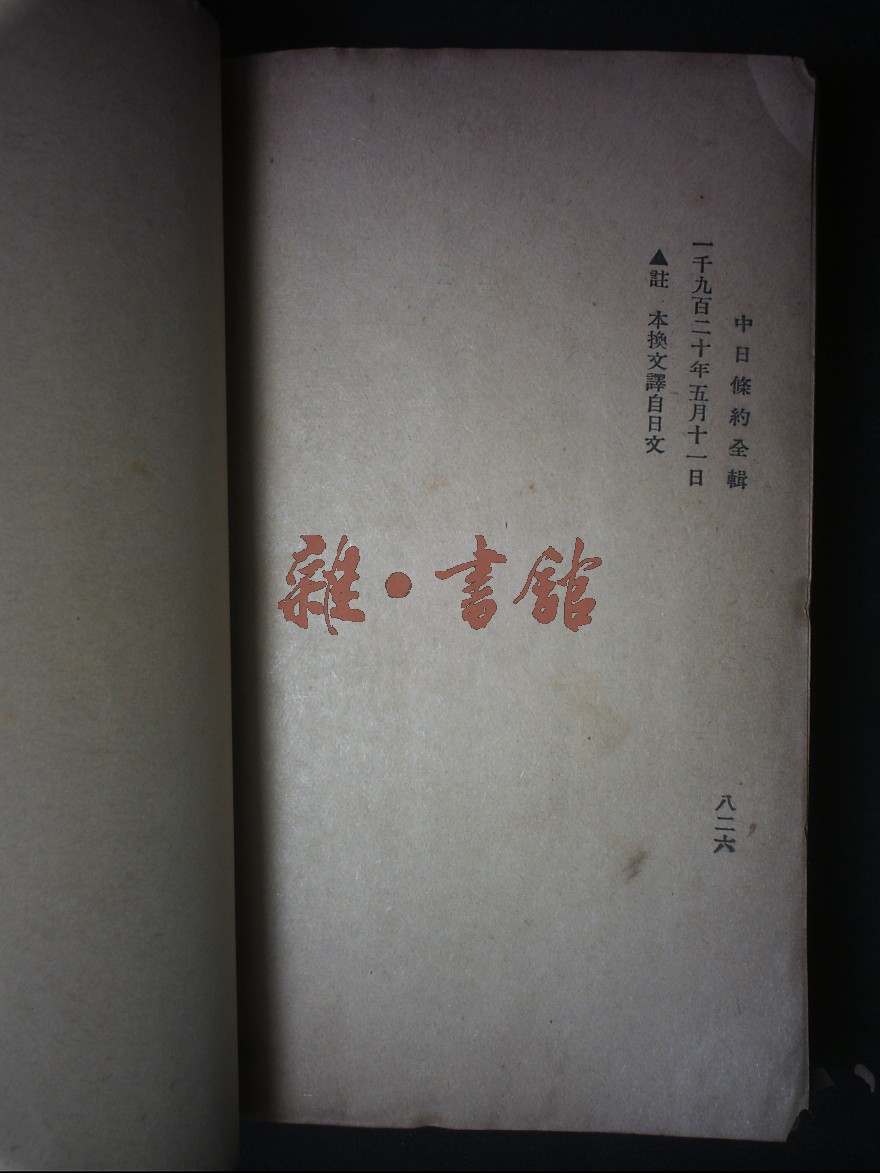 中日條約全輯
八二六
一千九百二十年五月十一日
▲註 本換文譯自日文
雜·書館